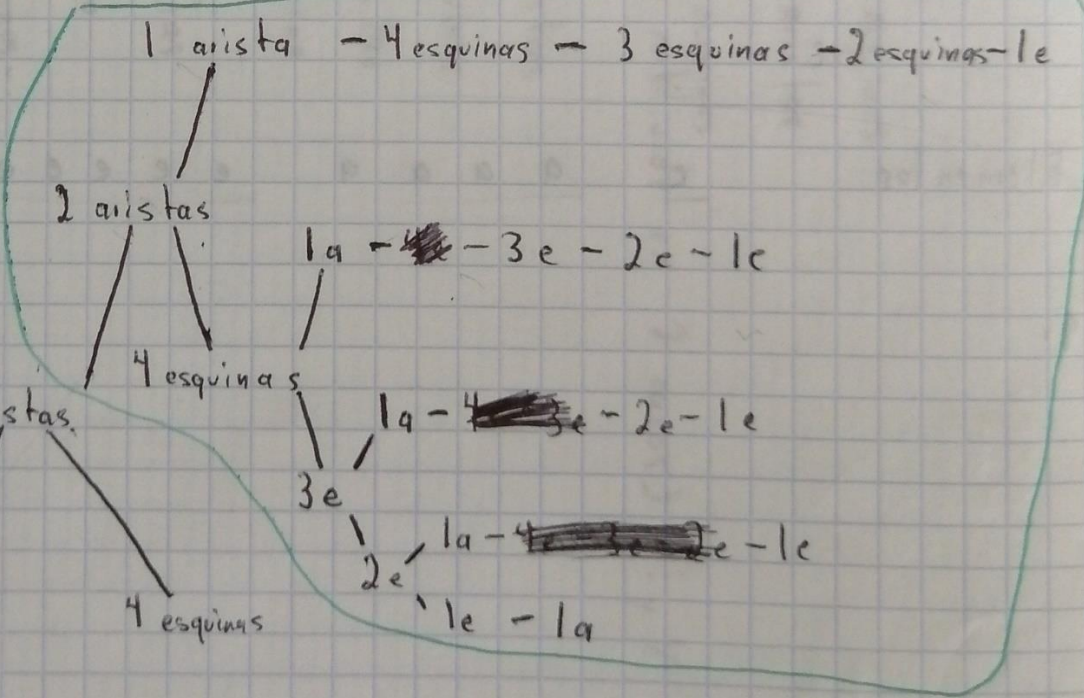 1 arista - 4 esquinas - 3 esquinas - 2 esquinas - 1e
2 aristas
1a - - 3e - 2e - 1e
4 esquinas
stas
1a - - 2e - 1e
3e
1a - - 1e
2e
4 esquinas
1e - 1a